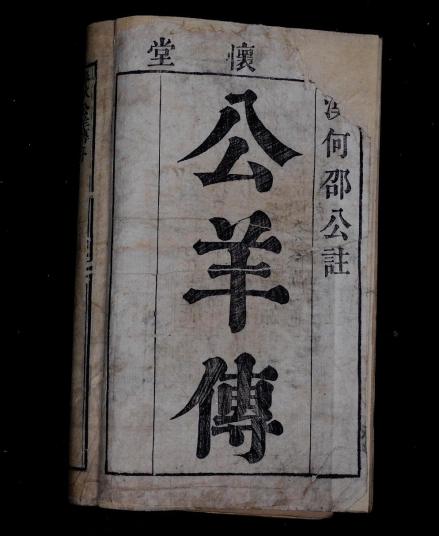 懷堂
漢何邵公註
公羊傳